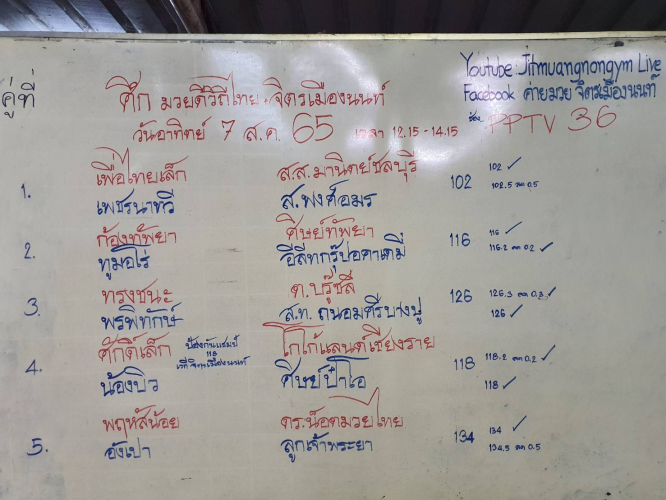 Youtube: Jitmuangnongym Live
Facebook ค่ายมวย จิตรเมืองนนท์
ช่อง PPTV 36
คู่ที่
ศึก มวยดีวิถีไทย + จิตรเมืองนนท์
วันอาทิตย์ 7 ส.ค. 65 เวลา 12.15 - 14.15
1. เพื่อไทยเล็ก ส.ส.มานิตย์ชลบุรี 102 102 ✓
เพชรนาทวี ส.พงศ์อมร 102.5 ลด 0.5
2. ก้องทัพยา ศิษย์ทัพยา 116 116 ✓
ทูมอโร่ อีลีทกรุ๊ปอคาเดมี่ 116.2 ลด 0.2 ✓
3. ทรงชนะ ต.บรู๊ซลี 126 126.3 ลด 0.3 ✓
พรพิทักษ์ ส.ท. ถนอมศรีบางปู 126 ✓
4. ศักดิ์เล็ก ป้องกันแชมป์ 118 เวทีจิตรเมืองนนท์ โกไก่แลนด์เชียงราย 118 118.2 ลด 0.2 ✓
น้องบิว ศิษย์ป๋าโอ 118 ✓
5. พฤหัสน้อย ดร.น็อตมวยไทย 134 134 ✓
อังเปา ลูกเจ้าพระยา 134.5 ลด 0.5